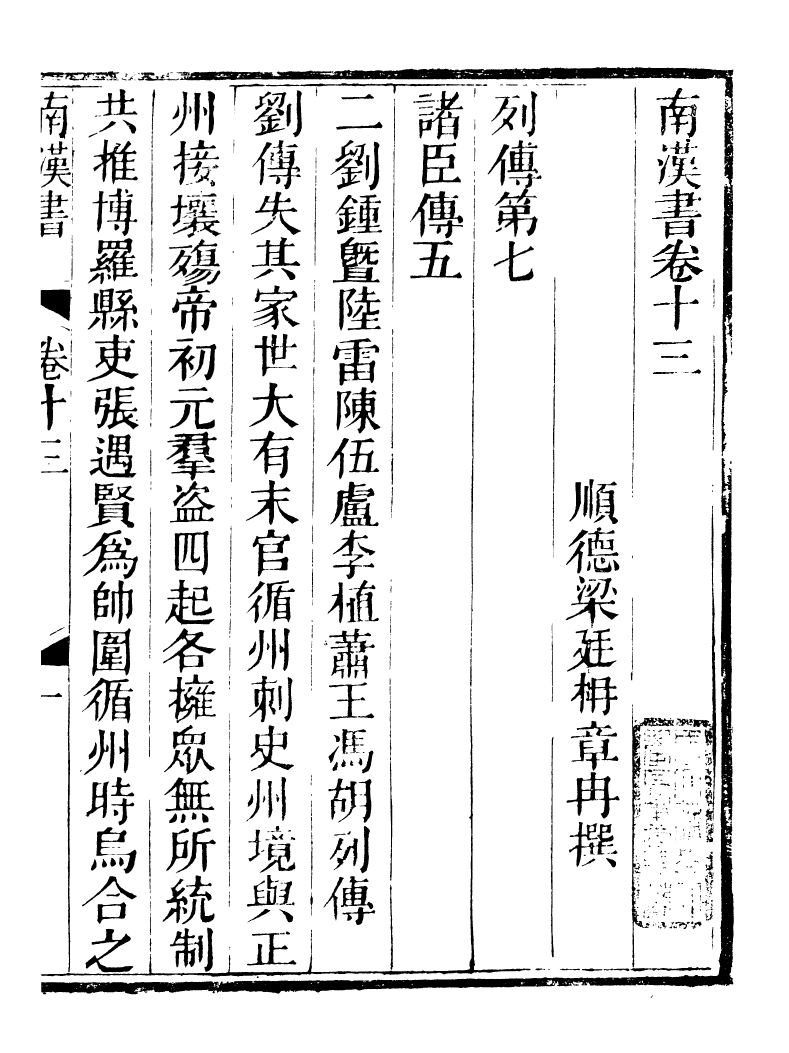 南漢書卷十三
順德梁廷枏章冉撰
列傳第七
諸臣傳五
二劉鍾暨陸雷陳伍盧李植蕭王馮胡列傳
劉傳失其家世大有末官循州刺史州境與正
州接壤殤帝初元羣盗四起各擁眾無所統制
共推博羅縣吏張遇賢爲帥圍循州時烏合之
南漢書 卷十三 一